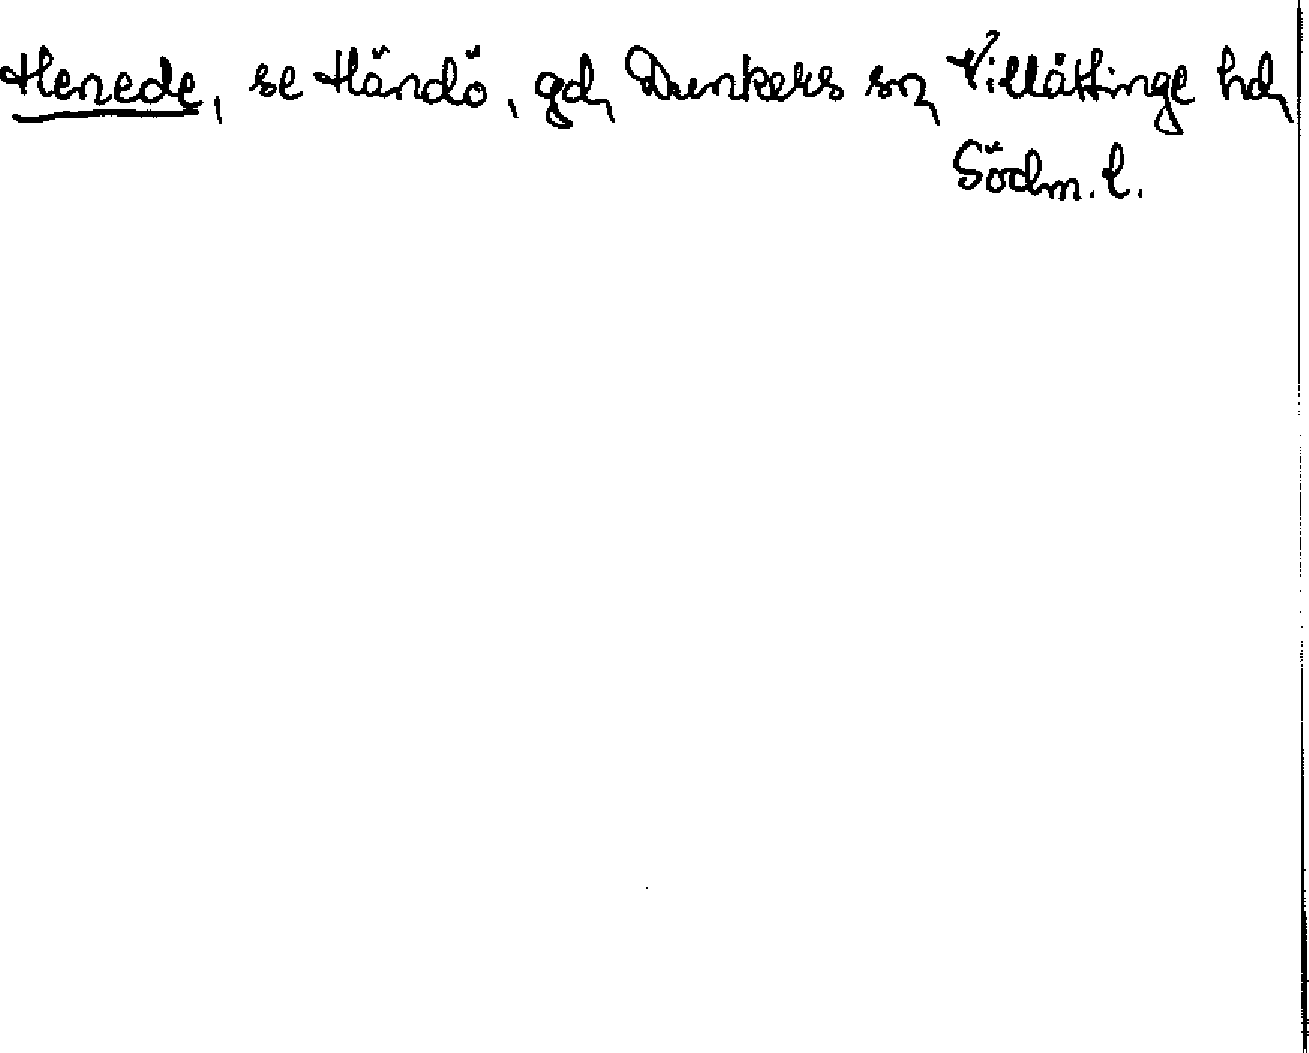 Henede, se Händö, gd, Dunkers sn, Villåttinge hd,
Södm. l.